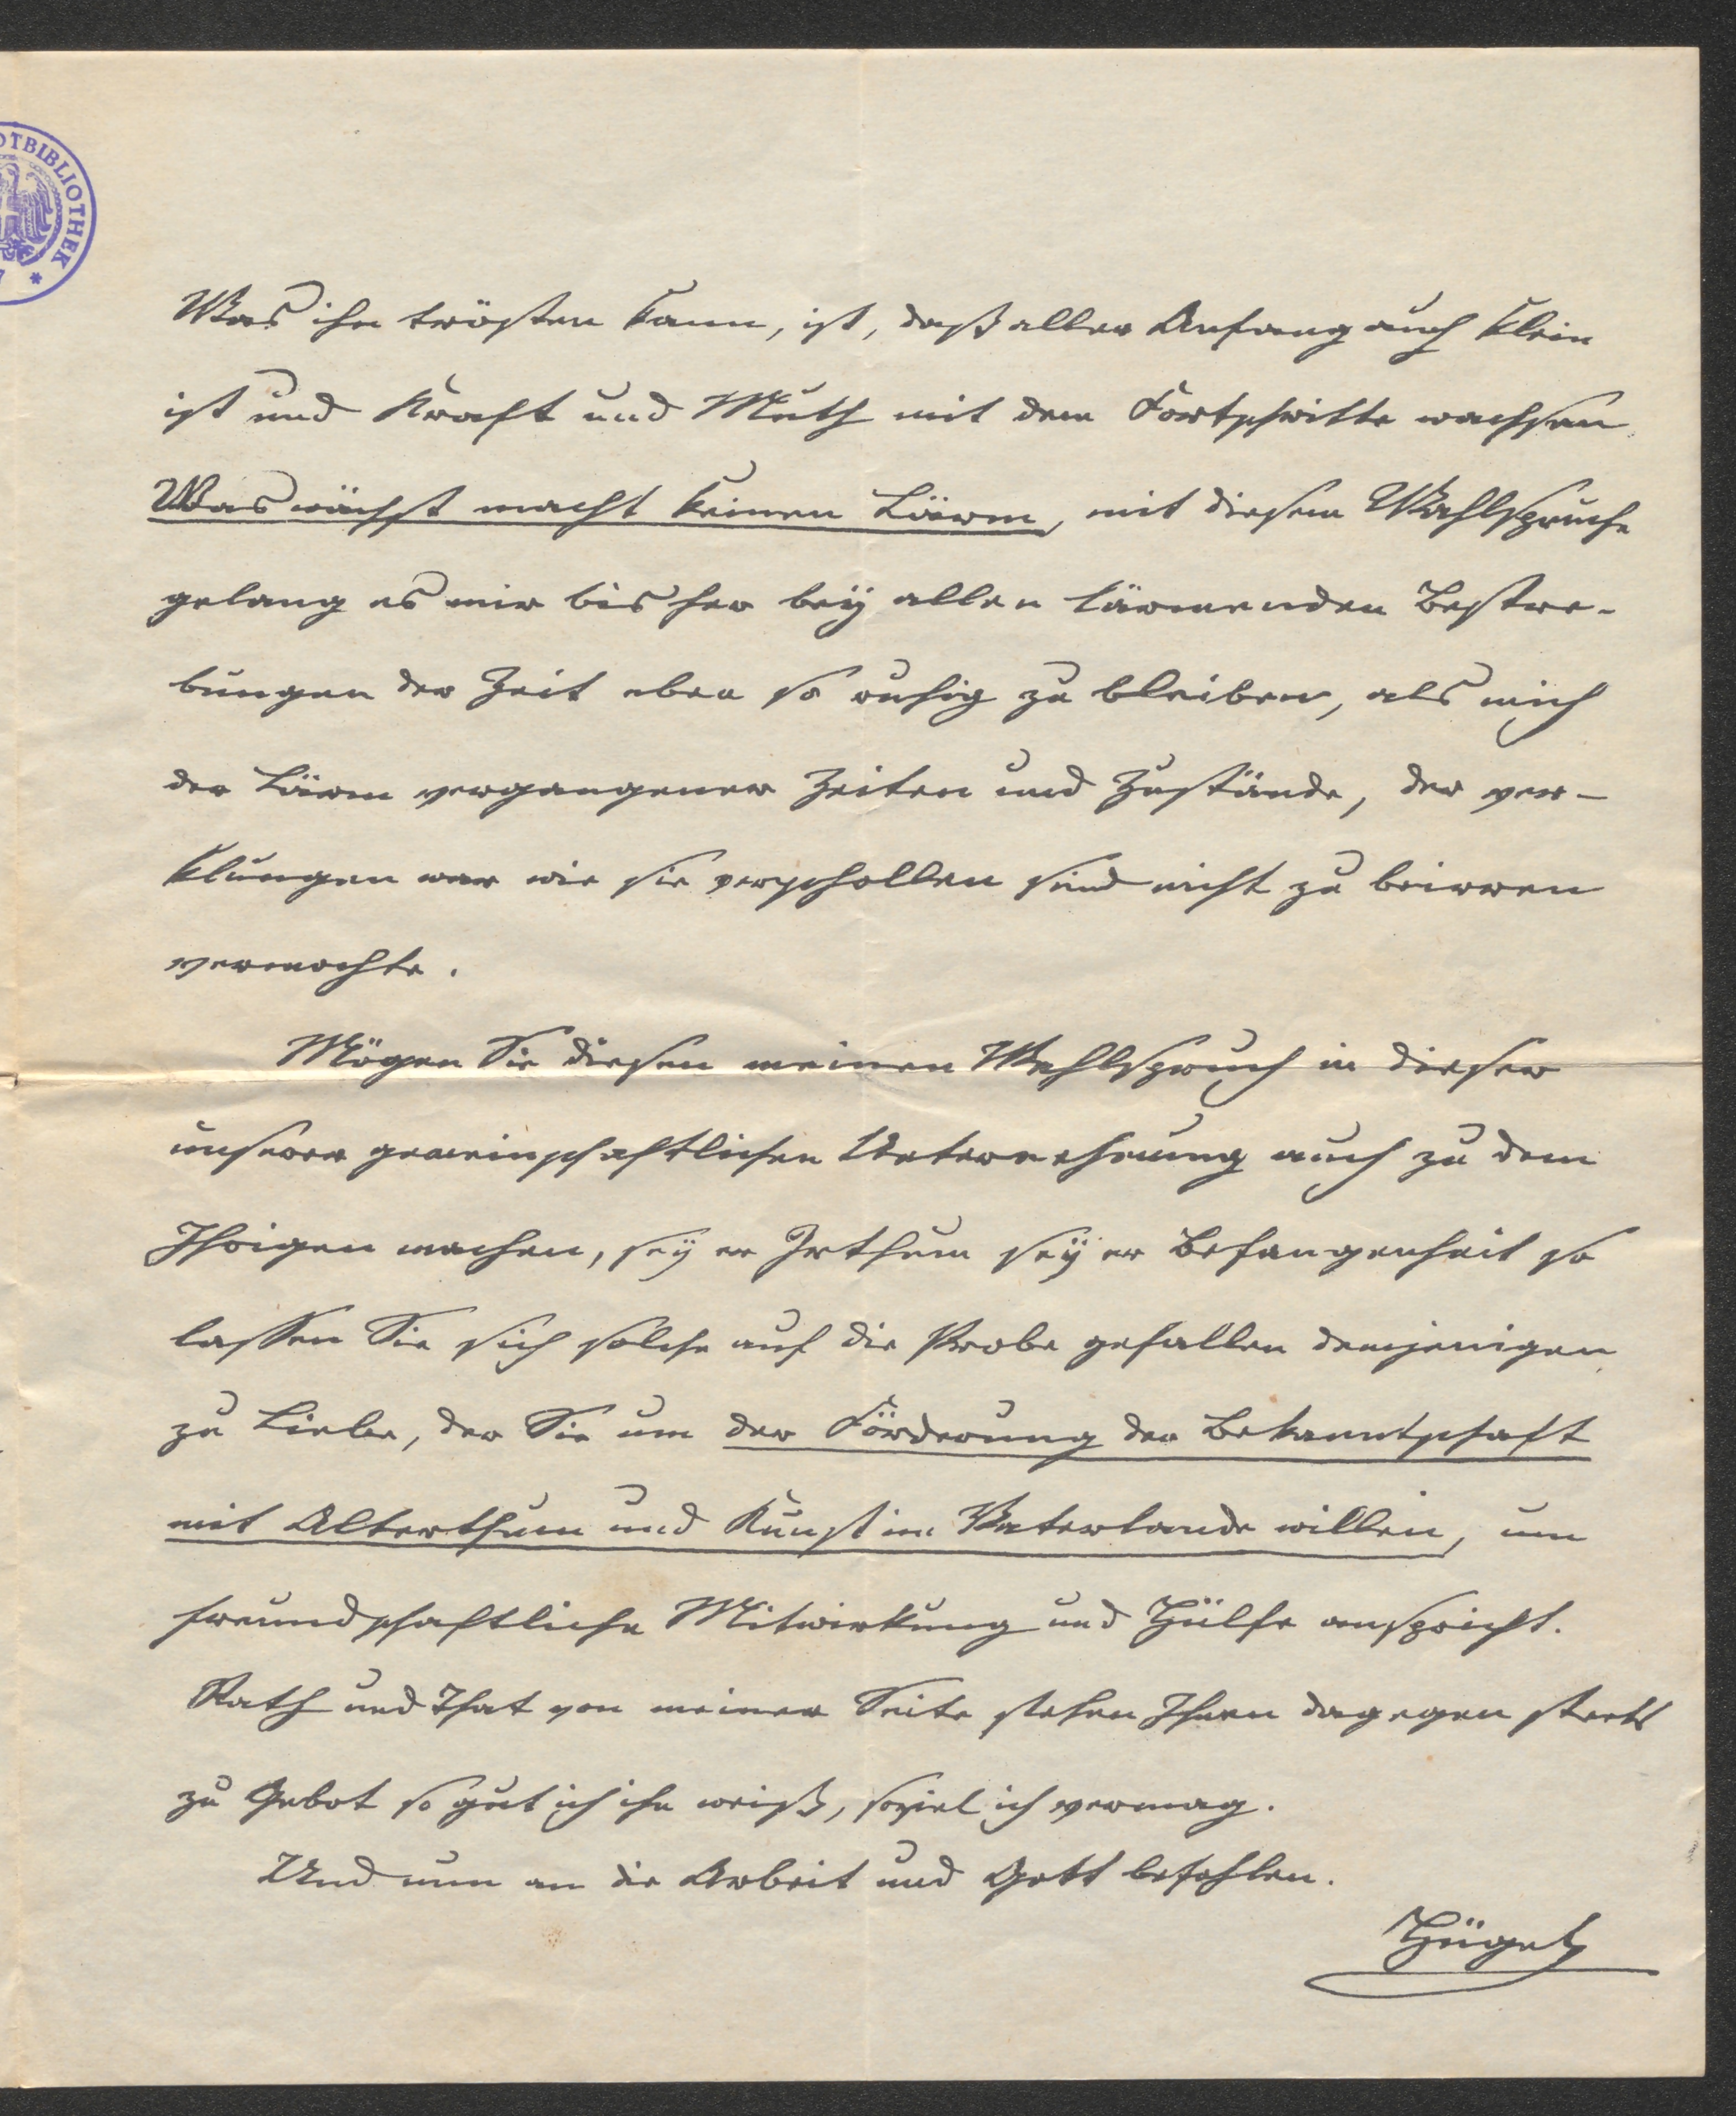 OTBIBLIOTHEK *
Was ihn trösten kann, ist, daß aller Anfang auch klein
ist und Kraft und Muth mit dem Fortschritte wachsen.
Was wächst macht keinen Lärm, mit diesem Wahlspruche
gelang es mir bisher bey allen lärmenden Bestre-
bungen der Zeit eben so ruhig zu bleiben, als mich
der Lärm vergangener Zeiten und Zustände, der ver-
klungen war wie sie verschollen sind nicht zu beirren
vermochte.
Mögen Sie diesen meinen Wahlspruch in dieser
unserer gemeinschaftlichen Unternehmung auch zu dem
Ihrigen machen, sey er Irthum sey er Befangenheit so
lassen Sie sich solche auf die Probe gefallen demjenigen
zu Liebe, der Sie um der Förderung der Bekanntschaft
mit Alterthum und Kunst im Vaterlande willen, um
freundschaftliche Mitwirkung und Hülfe anspricht.
Rath und That von meiner Seite stehen Ihnen dagegen steets
zu Gebot so gut ich ihn weiß, soviel ich vermag.
Und nun an die Arbeit und Gott befohlen.
Hügel